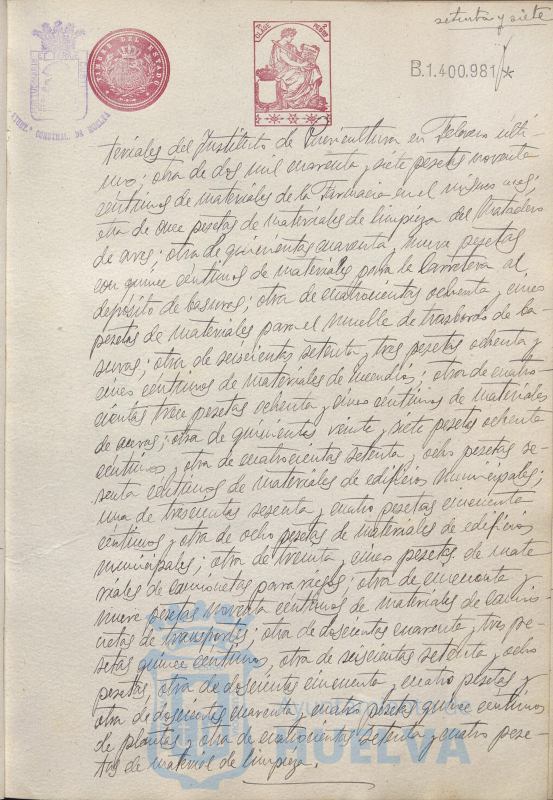 setenta y siete
CLASE
TIMBRE DEL ESTADO
B.1.400.981
teriales del Instituto de Puericultura en Febrero últi-
mo; otra de dos mil cuarenta y siete pesetas noventa
centimos de materiales de la Farmacia en el mismo mes;
otra de once pesetas de materiales de limpieza del Matadero
de aves; otra de quinientas cuarenta y nueve pesetas
con quince centimos de materiales para la Carretera al
depósito de basuras; otra de cuatrocientas ochenta y cinco
pesetas de materiales para el muelle de trasbordo de ba-
suras; otra de seiscientas setenta y tres pesetas ochenta y
cinco centimos de materiales de incendios; otra de cuatro-
cientas trece pesetas ochenta y cinco centimos de materiales
de ; otra de quinientas veinte y siete pesetas ochenta
centimos y otra de cuatrocientas setenta y ocho pesetas se-
senta centimos de materiales de edificios municipales;
una de trescientas sesenta y cuatro pesetas cincuenta
centimos y otra de ocho pesetas de materiales de edificios
municipales; otra de treinta y cinco pesetas de mate
riales de camionetas para riegos; otra de cincuenta y
nueve pesetas noventa centimos de materiales de camio-
netas de transportes; otra de doscientas cuarenta y tres pe-
setas quince centimos, otra de seiscientas setenta y ocho
pesetas, otra de doscientas cincuenta y cuatro pesetas y
otra de doscientas cuarenta y cuatro pesetas quince centimos
de plantas y otra de cuatrocientas setenta y cuatro pese-
tas de material de limpieza.
HUELVA